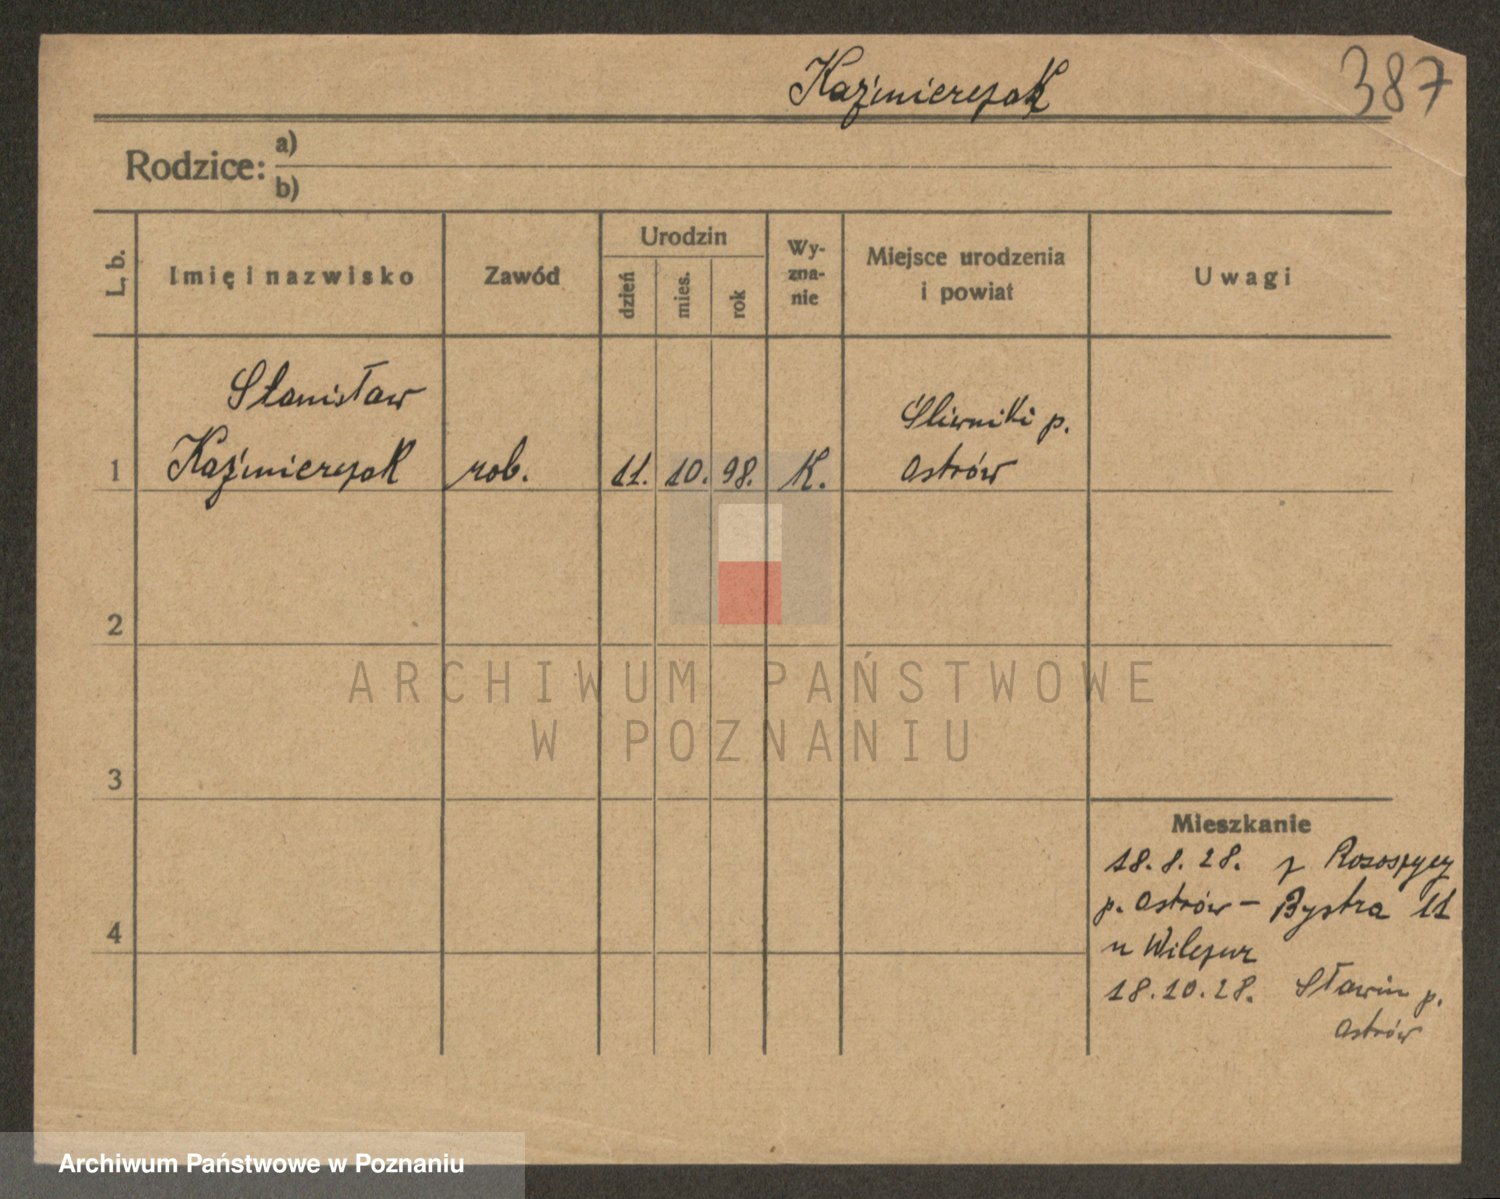 Kaźmierczak 387
Rodzice: a)
b)
L. b.
Imię i nazwisko
Zawód
Urodzin
dzień
mies.
rok
Wy-
zna-
nie
Miejsce urodzenia
i powiat
Uwagi
Stanisław
1 Kaźmierczak rob. 11. 10. 98. K. Śliwniki p.
Ostrów
2
3
4
ARCHIWUM PAŃSTWOWE
W POZNANIU
Mieszkanie
18.8.28. z Rososzycy
p. Ostrów – Bystra 11
u
18.10.28. Sławin p.
Ostrów
Archiwum Państwowe w Poznaniu